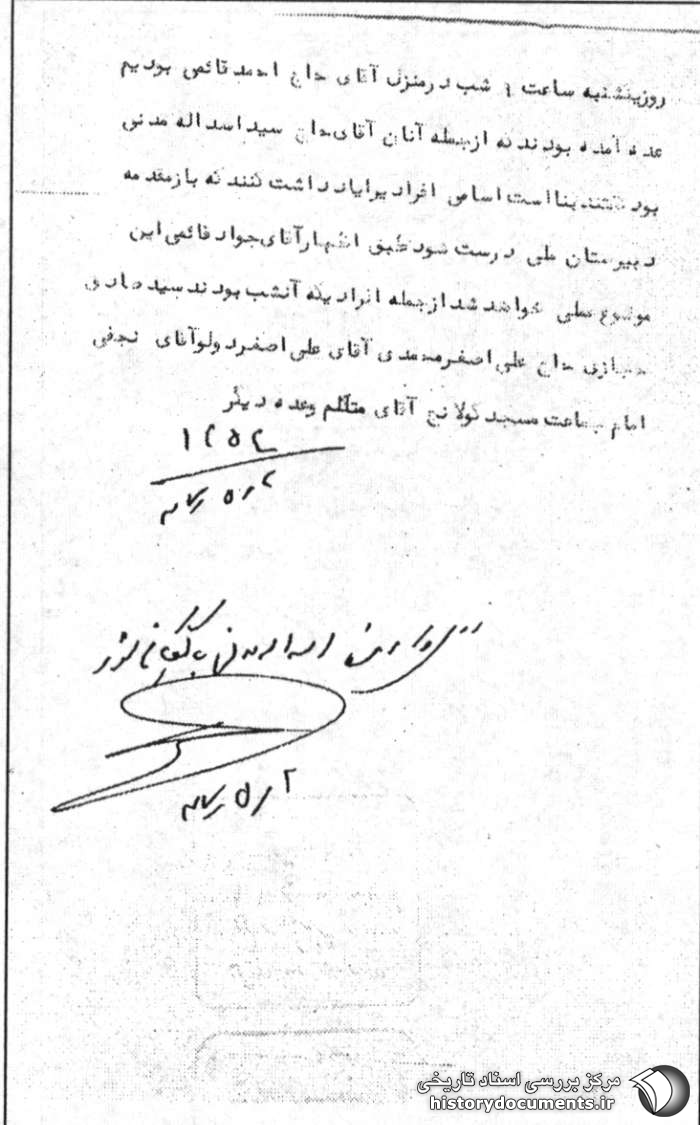 روز پنشنبه ساعت ۹ شب در منزل آقای حاج احمد قائمی بودیم
عده آمده بودند که از جمله آنان آقای حاج سید اسداله مدنی
بود گفتند بنا است اساس افراد یرا یاد داشت کنند که باز مقدمه
دبیرستان ملی درست شود طبق اظهار آقای جواد قائمی این
موضوع عملی خواهد شد از جمله افرادیکه آنشب بودند سید صادق
حجازی حاج علی اصغر محمدی آقای علی اصغر دولو آقای نجفی
امام جماعت مسجد کولانج آقای متکلم وعده دیگر
اسداله مدنی
مرکز بررسی اسناد تاریخی
historydocuments.ir